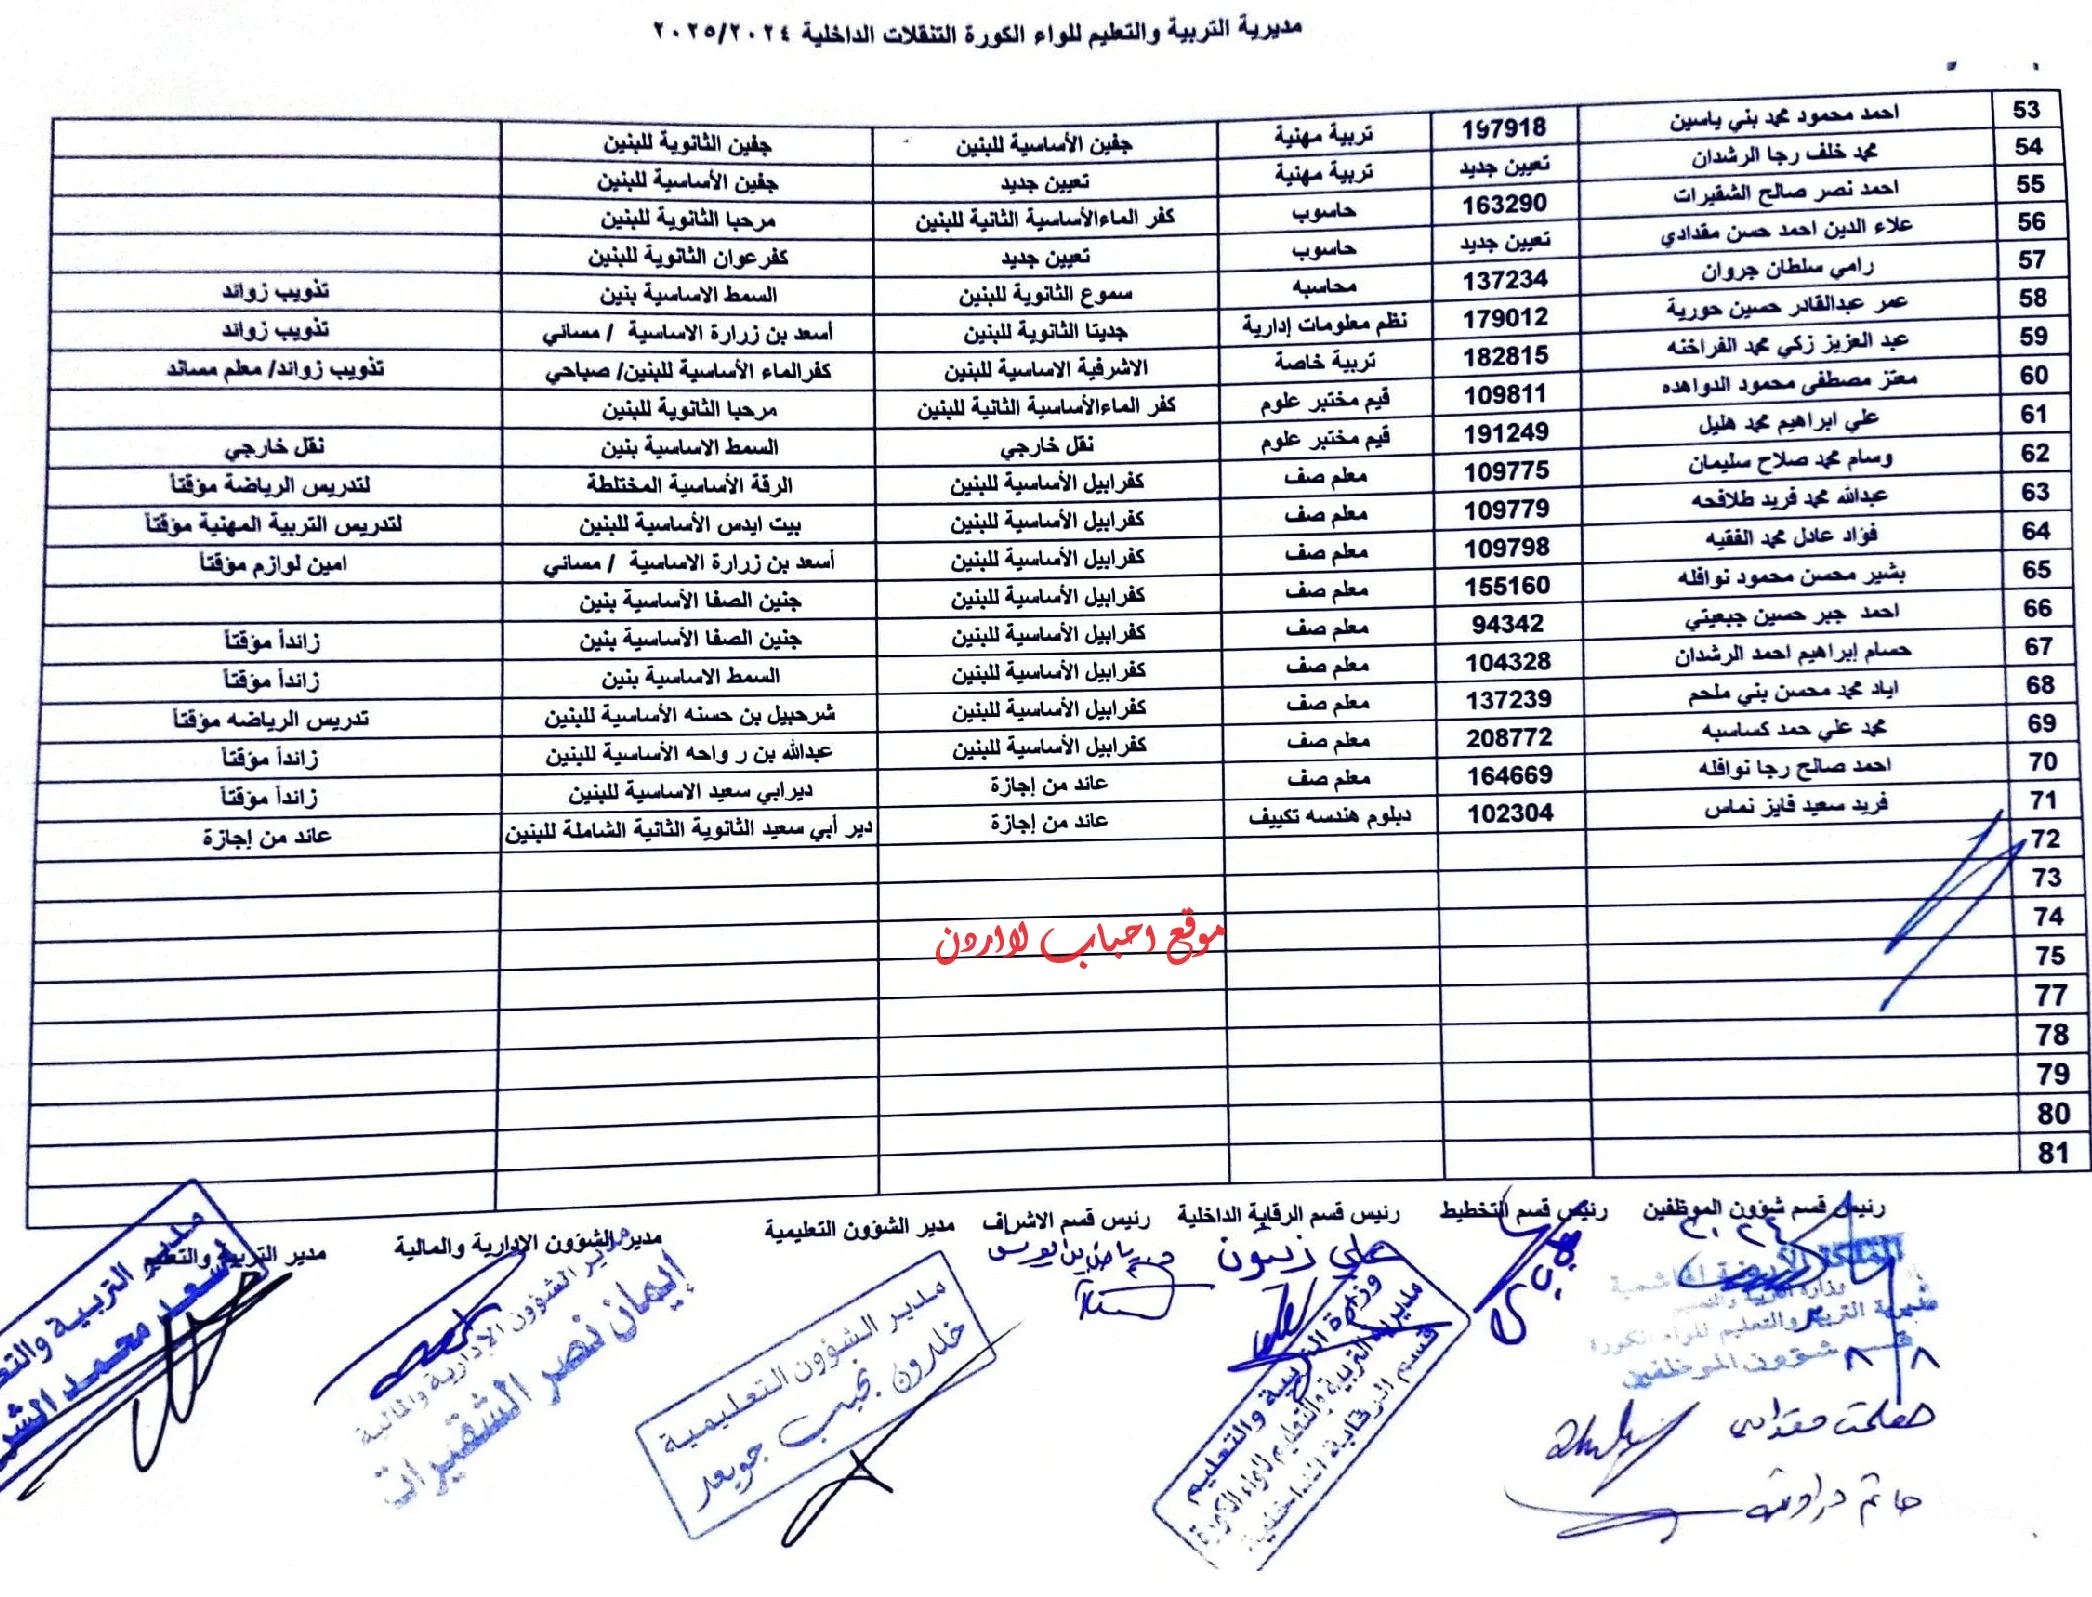 مديرية التربية والتعليم للواء الكورة التنقلات الداخلية ٢٠٢٥/٢٠٢٤
53 احمد محمود محمد بني ياسين 197918 تربية مهنية جفين الأساسية للبنين جفين الثانوية للبنين
54 محمد خلف رجا الرشدان تعيين جديد تربية مهنية تعيين جديد جفين الأساسية للبنين
55 احمد نصر صالح الشقيرات 163290 حاسوب كفر الماءالأساسية الثانية للبنين مرحبا الثانوية للبنين
56 علاء الدين احمد حسن مقدادي تعيين جديد حاسوب تعيين جديد كفرعوان الثانوية للبنين
57 رامي سلطان جروان 137234 محاسبه سموع الثانوية للبنين السمط الاساسية بنين تذويب زوائد
58 عمر عبدالقادر حسين حورية 179012 نظم معلومات إدارية جديتا الثانوية للبنين أسعد بن زرارة الاساسية / مسائي تذويب زوائد
59 عبد العزيز زكي محمد الفراخنه 182815 تربية خاصة الاشرفية الاساسية للبنين كفرالماء الأساسية للبنين/ صباحي تذويب زوائد/ معلم مساند
60 معتز مصطفى محمود الدواهده 109811 قيم مختبر علوم كفر الماءالأساسية الثانية للبنين مرحبا الثانوية للبنين
61 علي ابراهيم محمد هليل 191249 قيم مختبر علوم نقل خارجي السمط الاساسية بنين نقل خارجي
62 وسام محمد صلاح سليمان 109775 معلم صف كفرابيل الأساسية للبنين الرقة الأساسية المختلطة لتدريس الرياضة مؤقتاً
63 عبدالله محمد فريد طلافحه 109779 معلم صف كفرابيل الأساسية للبنين بيت ايدس الأساسية للبنين لتدريس التربية المهنية مؤقتاً
64 فؤاد عادل محمد الفقيه 109798 معلم صف كفرابيل الأساسية للبنين أسعد بن زرارة الاساسية / مسائي امين لوازم مؤقتاً
65 بشير محسن محمود نوافله 155160 معلم صف كفرابيل الأساسية للبنين جنين الصفا الأساسية بنين
66 احمد جبر حسين جبعيتي 94342 معلم صف كفرابيل الأساسية للبنين جنين الصفا الأساسية بنين زائداً مؤقتاً
67 حسام إبراهيم احمد الرشدان 104328 معلم صف كفرابيل الأساسية للبنين السمط الاساسية بنين زائداً مؤقتاً
68 اياد محمد محسن بني ملحم 137239 معلم صف كفرابيل الأساسية للبنين شرحبيل بن حسنه الأساسية للبنين تدريس الرياضه مؤقتاً
69 محمد علي حمد كساسبه 208772 معلم صف كفرابيل الأساسية للبنين عبدالله بن رواحه الأساسية للبنين زائداً مؤقتاً
70 احمد صالح رجا نوافله 164669 معلم صف عائد من إجازة ديرابي سعيد الاساسية للبنين زائداً مؤقتاً
71 فريد سعيد فايز نماس 102304 دبلوم هندسه تكييف عائد من إجازة دير أبي سعيد الثانوية الثانية الشاملة للبنين عائد من إجازة
72
73
74
موقع احباب لااردن
75
77
78
79
80
81
رئيس قسم شؤون الموظفين رئيس قسم التخطيط رئيس قسم الرقابة الداخلية رئيس قسم الاشراف مدير الشؤون التعليمية مدير الشؤون الإدارية والمالية مدير التربية والتعليم
وزارة التربية والتعليم
مديرية التربية والتعليم للواء الكورة
قسم شؤون الموظفين
علي زيتون
وزارة التربية والتعليم
مديرية التربية والتعليم للواء الكورة
قسم الرقابة الداخلية
مدير الشؤون التعليمية
خلدون نجيب جويعد
مدير الشؤون الإدارية والمالية
إيمان نصر الشقيرات
مدير التربية والتع
محمد الشر
مقدادي
حاتم دراوشة